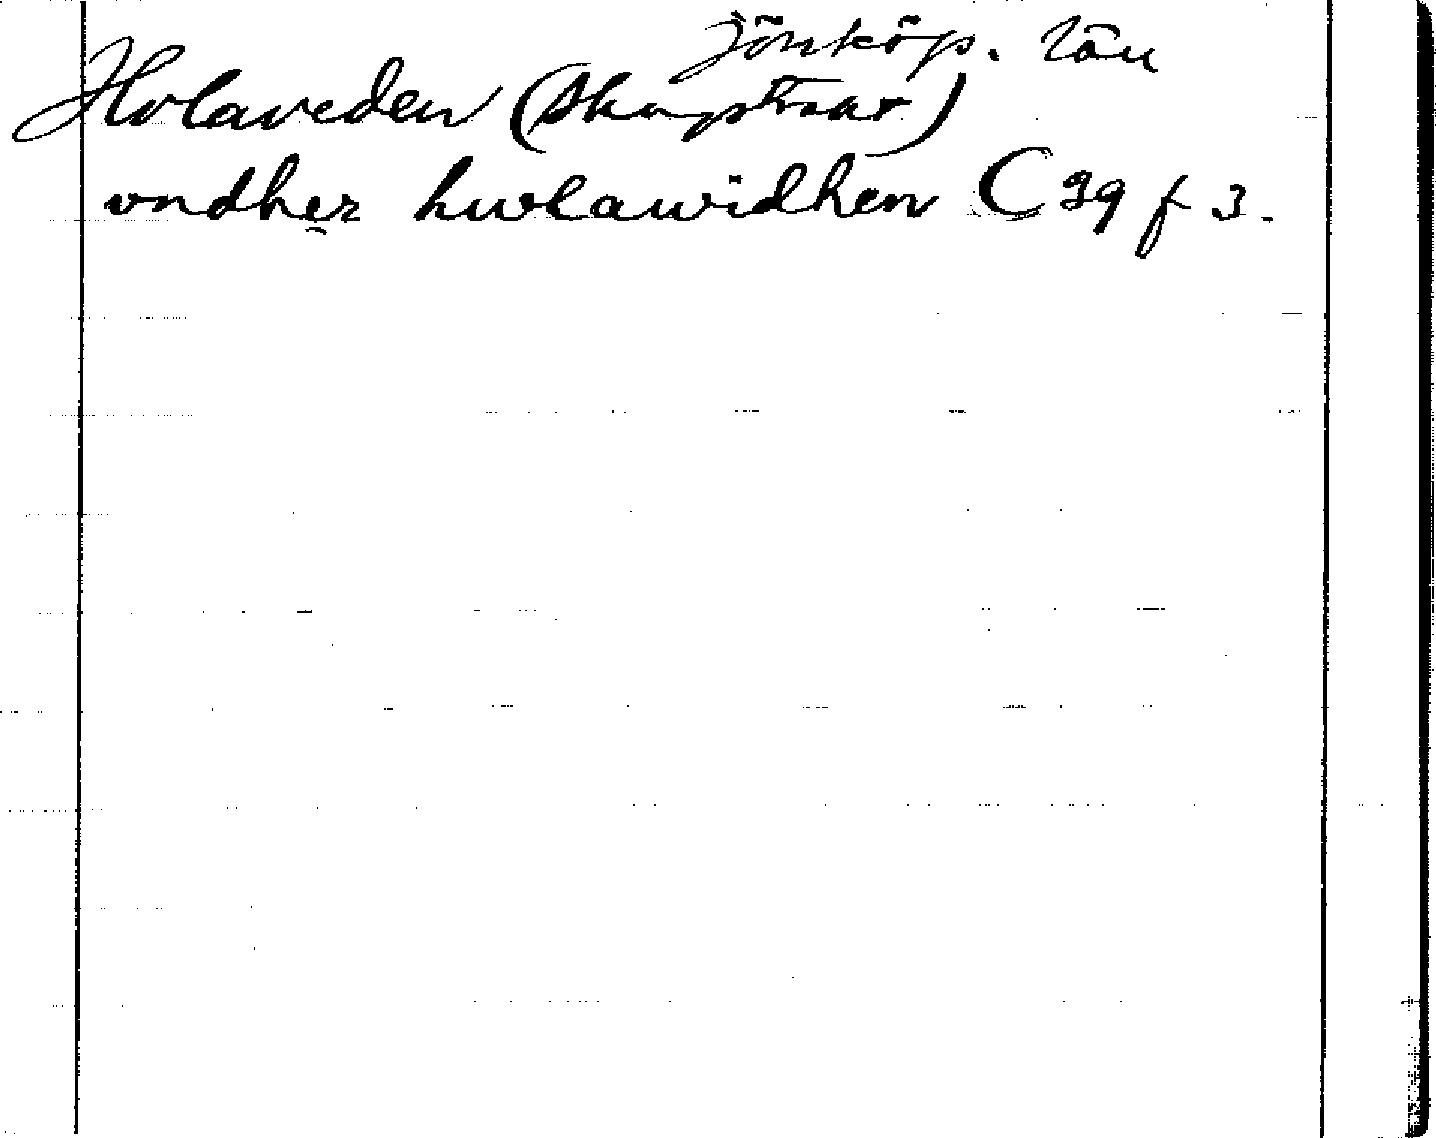 Jönköp. län
Holaveden (Skogstrakt)
vndher hwlawidhen C 39 f 3.